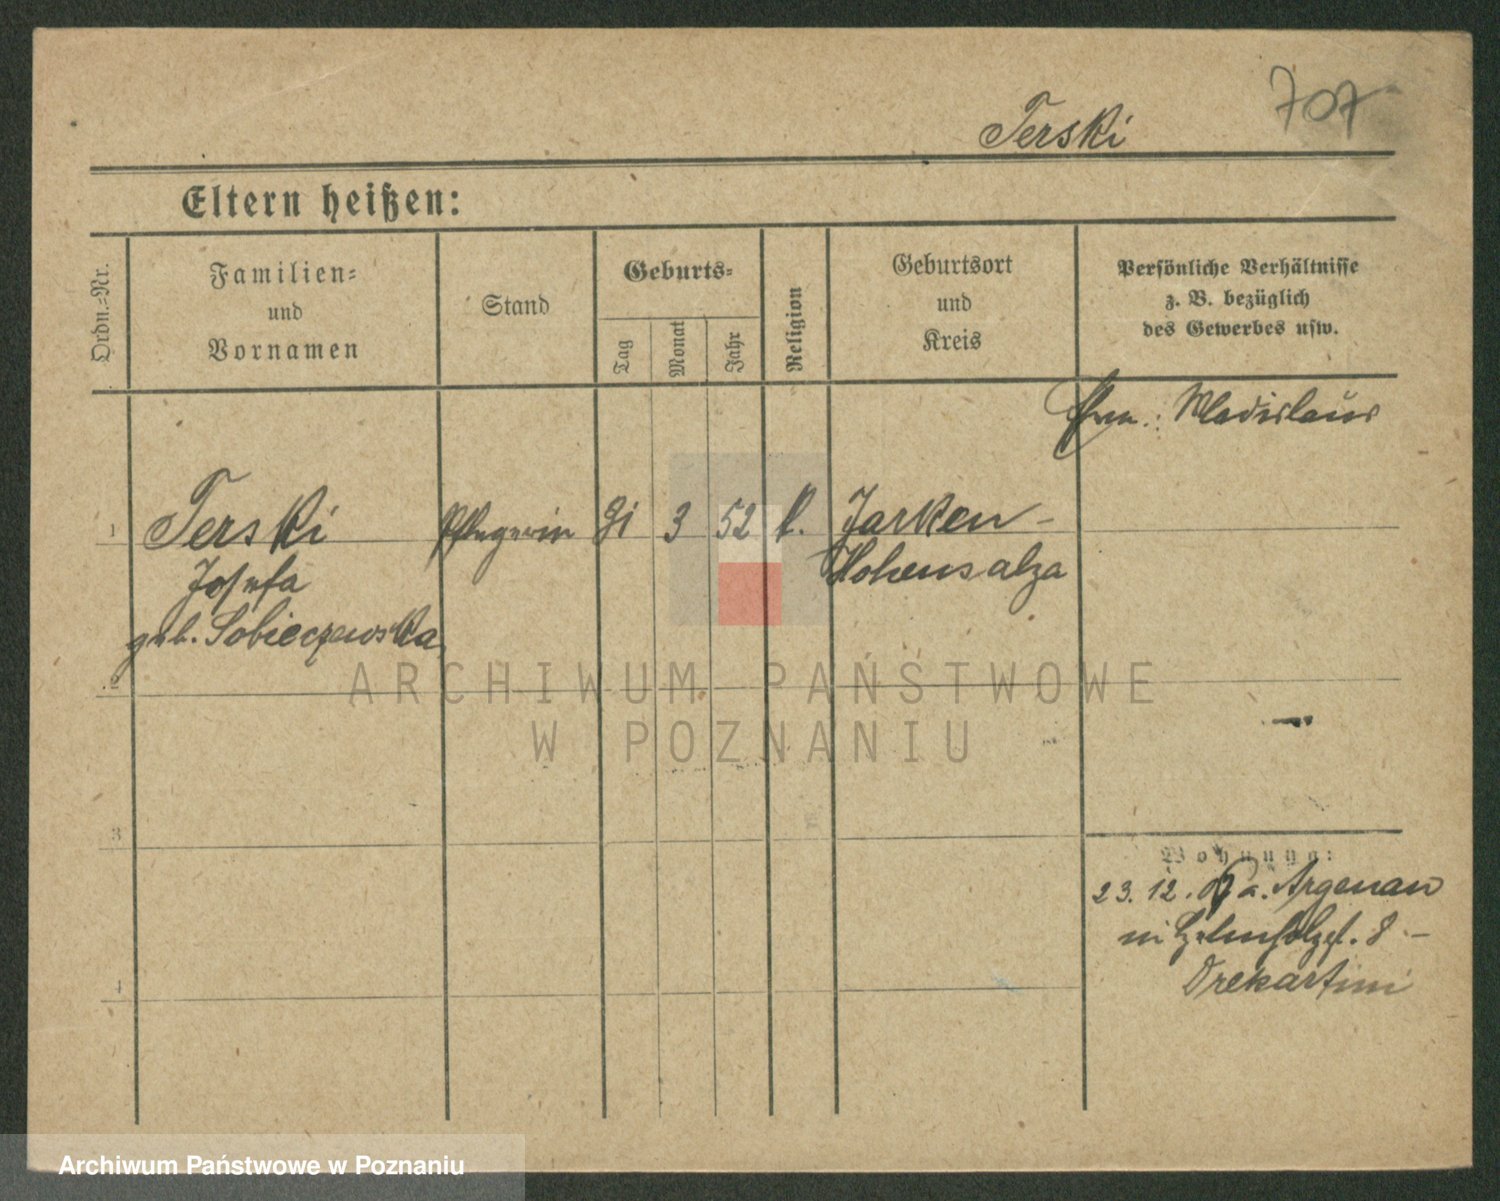 707
Terski
Eltern heißen:
Ordn.-Nr.
Familien-
und
Vornamen
Stand
Geburts-
Tag
Monat
Jahr
Religion
Geburtsort
und
Kreis
Persönliche Verhältnisse
z. B. bezüglich
des Gewerbes usw.
Wladislaus
1
Terski
Pflegerin
31
3
52
k.
Jarken-
Josefa
Hohensalza
geb. Sobieczewska
2
ARCHIWUM PAŃSTWOWE
W POZNANIU
3
Wohnung:
23.12. a. Argenau
8 -
4
Archiwum Państwowe w Poznaniu